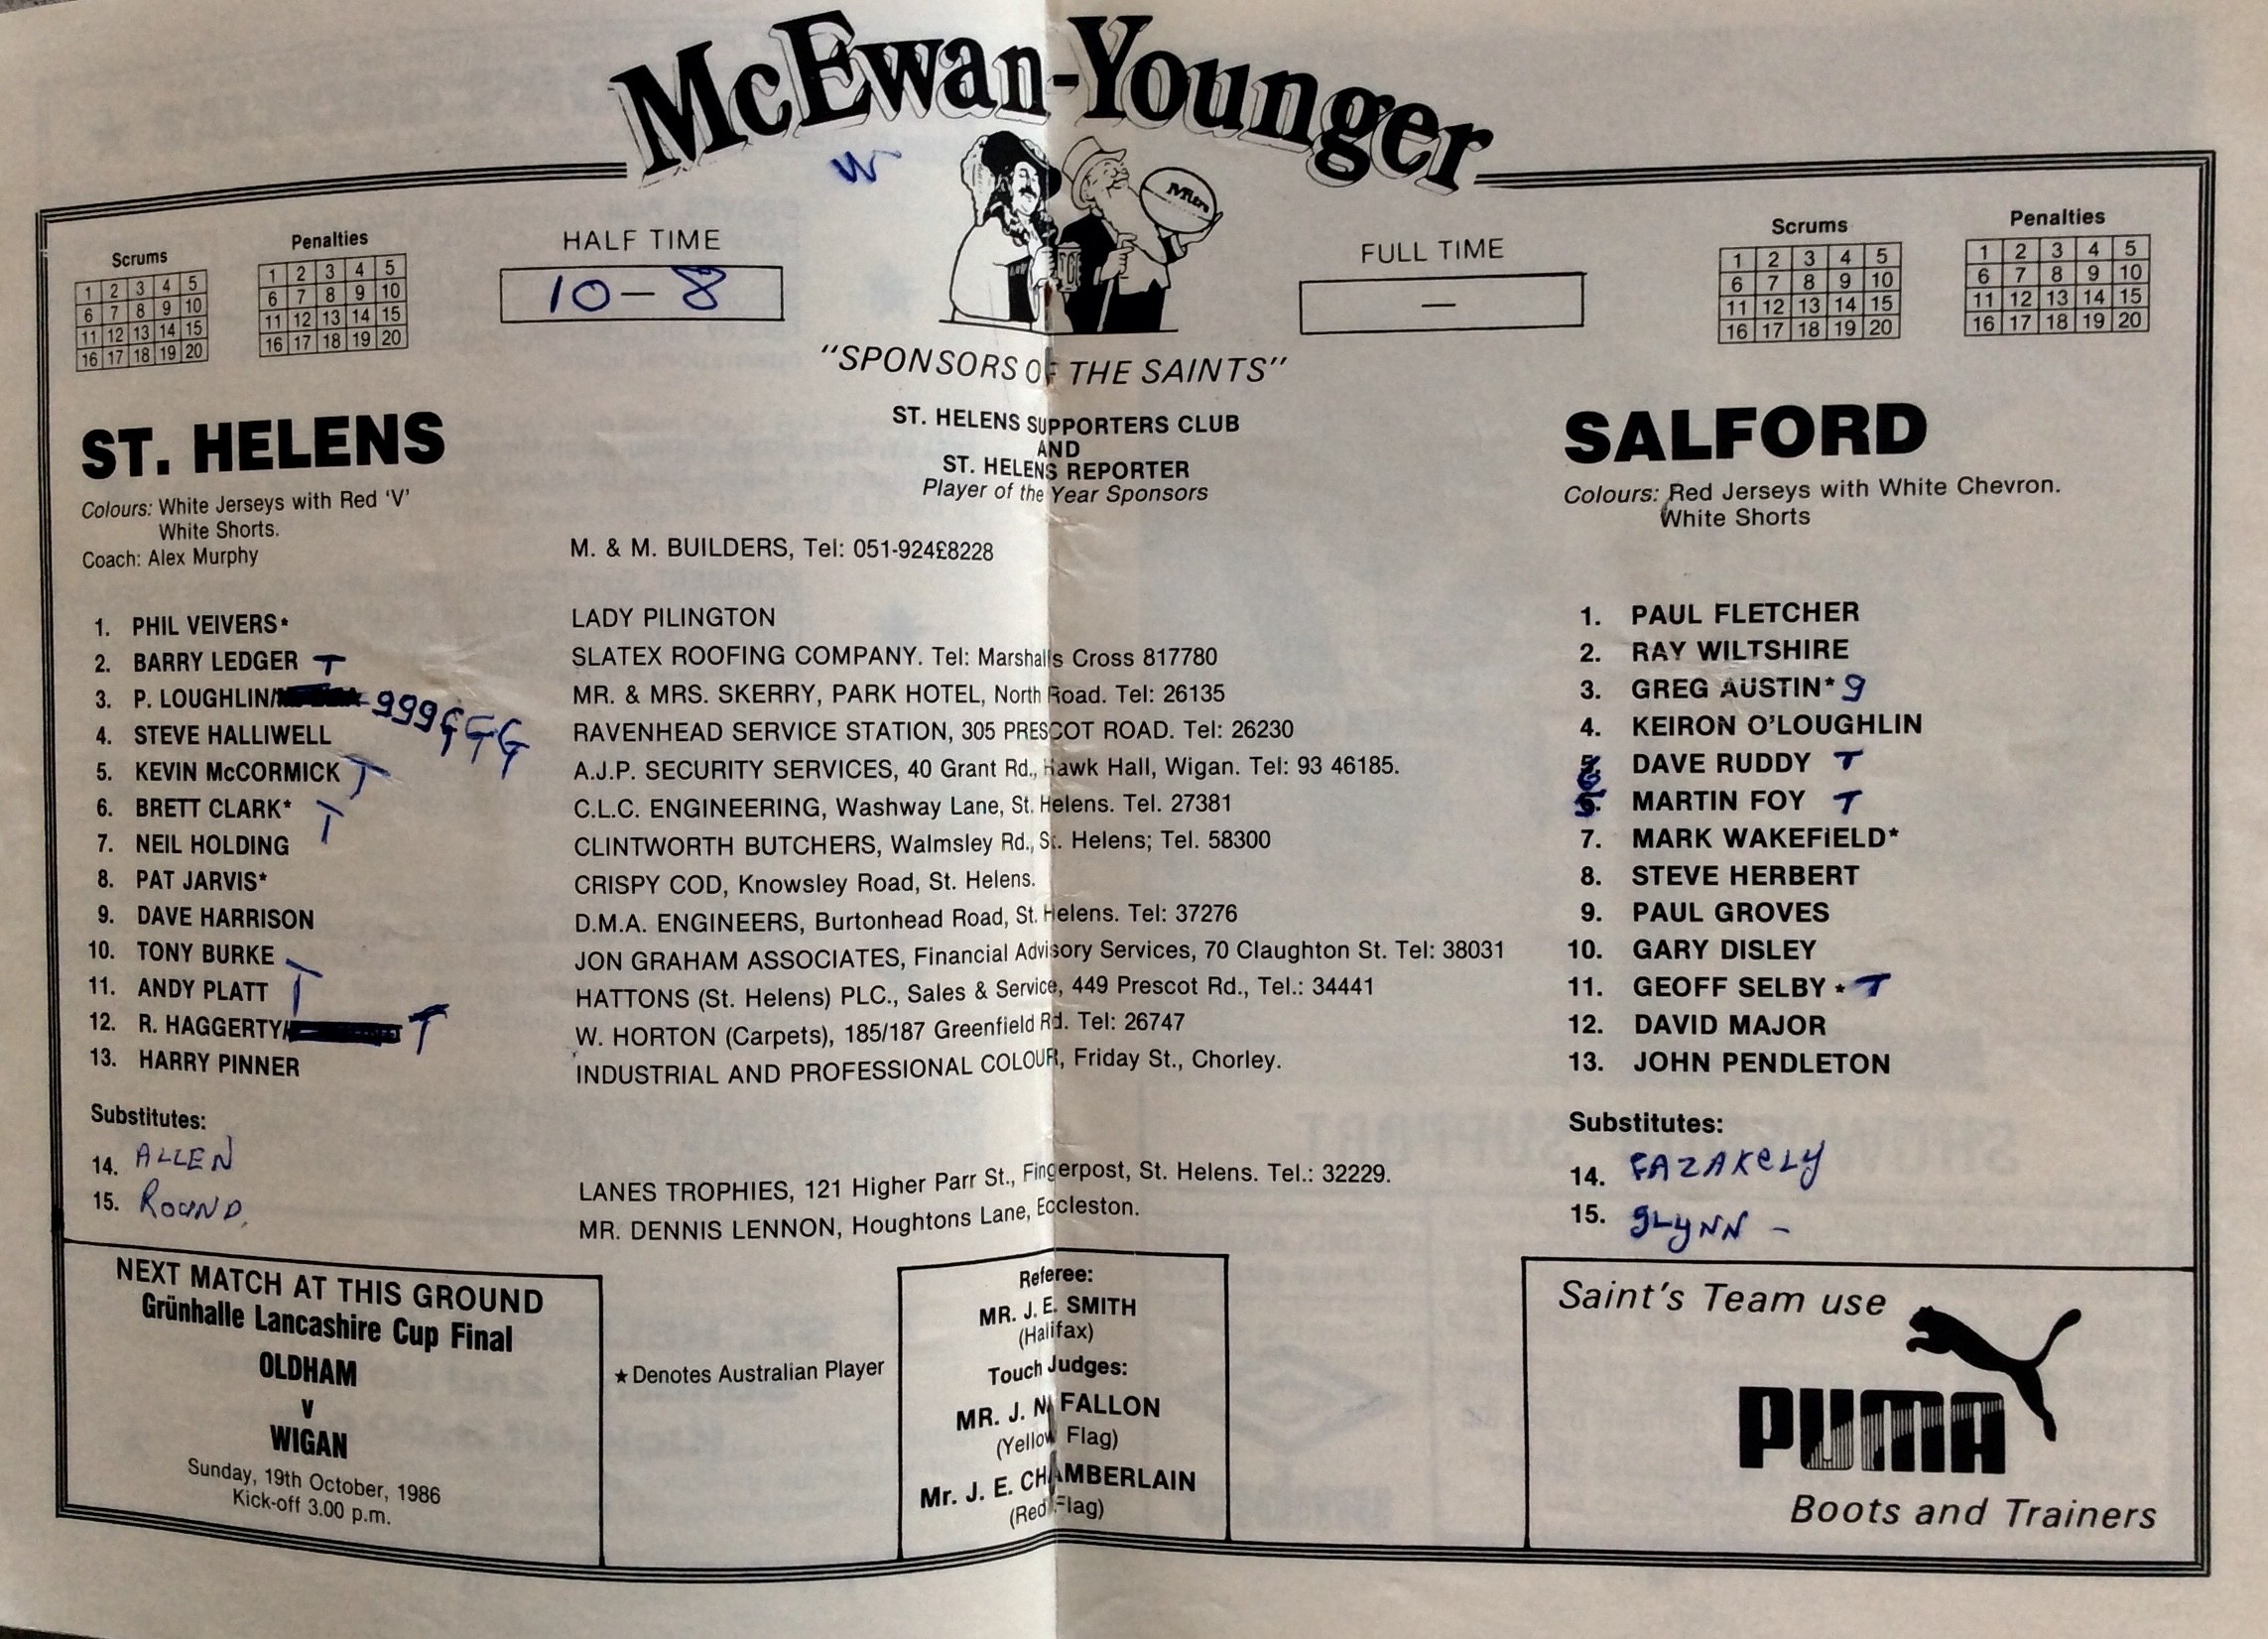 McEwan-Younger
W
Mitre
Scrums
1 2 3 4 5
6 7 8 9 10
11 12 13 14 15
16 17 18 19 20
Penalties
1 2 3 4 5
6 7 8 9 10
11 12 13 14 15
16 17 18 19 20
HALF TIME
10 - 8
FULL TIME
—
Scrums
1 2 3 4 5
6 7 8 9 10
11 12 13 14 15
16 17 18 19 20
Penalties
1 2 3 4 5
6 7 8 9 10
11 12 13 14 15
16 17 18 19 20
"SPONSORS OF THE SAINTS"
ST. HELENS SUPPORTERS CLUB
AND
ST. HELENS REPORTER
Player of the Year Sponsors
ST. HELENS
Colours: White Jerseys with Red 'V'
White Shorts.
Coach: Alex Murphy
1. PHIL VEIVERS*
2. BARRY LEDGER T
3. P. LOUGHLIN/ 999GGG
4. STEVE HALLIWELL
5. KEVIN McCORMICK T
6. BRETT CLARK* T
7. NEIL HOLDING
8. PAT JARVIS*
9. DAVE HARRISON
10. TONY BURKE
11. ANDY PLATT T
12. R. HAGGERTY/ T
13. HARRY PINNER
Substitutes:
14. ALLEN
15. ROUND.
M. & M. BUILDERS, Tel: 051-924£8228
LADY PILINGTON
SLATEX ROOFING COMPANY. Tel: Marshalls Cross 817780
MR. & MRS. SKERRY, PARK HOTEL, North Road. Tel: 26135
RAVENHEAD SERVICE STATION, 305 PRESCOT ROAD. Tel: 26230
A.J.P. SECURITY SERVICES, 40 Grant Rd., Hawk Hall, Wigan. Tel: 93 46185.
C.L.C. ENGINEERING, Washway Lane, St. Helens. Tel. 27381
CLINTWORTH BUTCHERS, Walmsley Rd., St. Helens; Tel. 58300
CRISPY COD, Knowsley Road, St. Helens.
D.M.A. ENGINEERS, Burtonhead Road, St. Helens. Tel: 37276
JON GRAHAM ASSOCIATES, Financial Advisory Services, 70 Claughton St. Tel: 38031
HATTONS (St. Helens) PLC., Sales & Service, 449 Prescot Rd., Tel.: 34441
W. HORTON (Carpets), 185/187 Greenfield Rd. Tel: 26747
INDUSTRIAL AND PROFESSIONAL COLOUR, Friday St., Chorley.
LANES TROPHIES, 121 Higher Parr St., Fingerpost, St. Helens. Tel.: 32229.
MR. DENNIS LENNON, Houghtons Lane, Eccleston.
SALFORD
Colours: Red Jerseys with White Chevron.
White Shorts
1. PAUL FLETCHER
2. RAY WILTSHIRE
3. GREG AUSTIN* 9
4. KEIRON O'LOUGHLIN
6 DAVE RUDDY T
5. MARTIN FOY T
7. MARK WAKEFiELD*
8. STEVE HERBERT
9. PAUL GROVES
10. GARY DISLEY
11. GEOFF SELBY * T
12. DAVID MAJOR
13. JOHN PENDLETON
Substitutes:
14. FAZAKELY
15. GLYNN -
NEXT MATCH AT THIS GROUND
Grünhalle Lancashire Cup Final
OLDHAM
v
WIGAN
Sunday, 19th October, 1986
Kick-off 3.00 p.m.
★ Denotes Australian Player
Referee:
MR. J. E. SMITH
(Halifax)
Touch Judges:
MR. J. N FALLON
(Yellow Flag)
Mr. J. E. CHAMBERLAIN
(Red Flag)
Saint's Team use
PUMA
Boots and Trainers